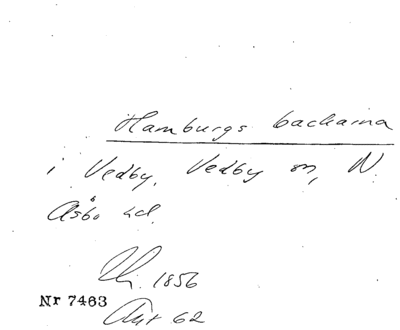 Hamburgs backarna
i Vedby, Vedby sn, N.
Åsbo hd.
1856
Nr 7463
62